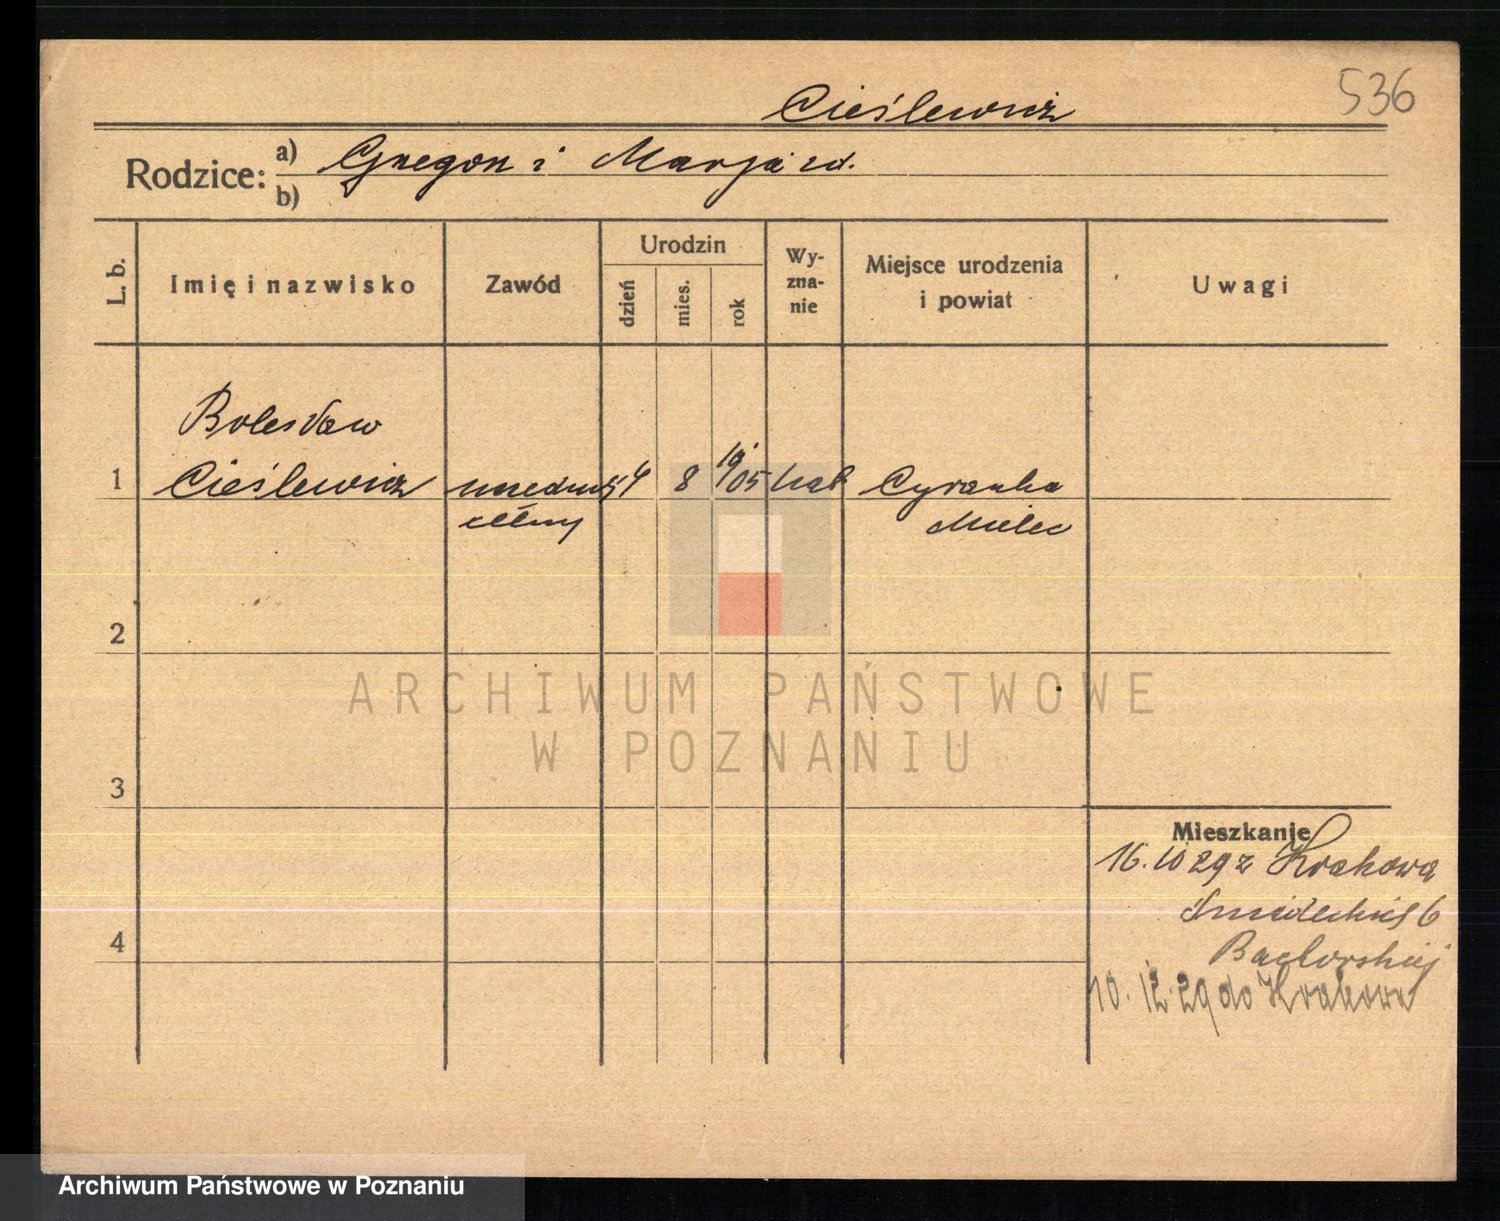 536
Cieślewicz
Rodzice: a) Grzegorz i Marja zd.
b)
L. b. Imię i nazwisko Zawód Urodzin dzień mies. rok Wyznanie Miejsce urodzenia i powiat Uwagi
Bolesław
1 Cieślewicz urzednik 4 8 19/05 kat Cyranka
celny Mielec
2
ARCHIWUM PAŃSTWOWE
W POZNANIU
3
Mieszkanie
16.10 29 z Krakowa
6
4
10.12.29 do Krakowa
Archiwum Państwowe w Poznaniu